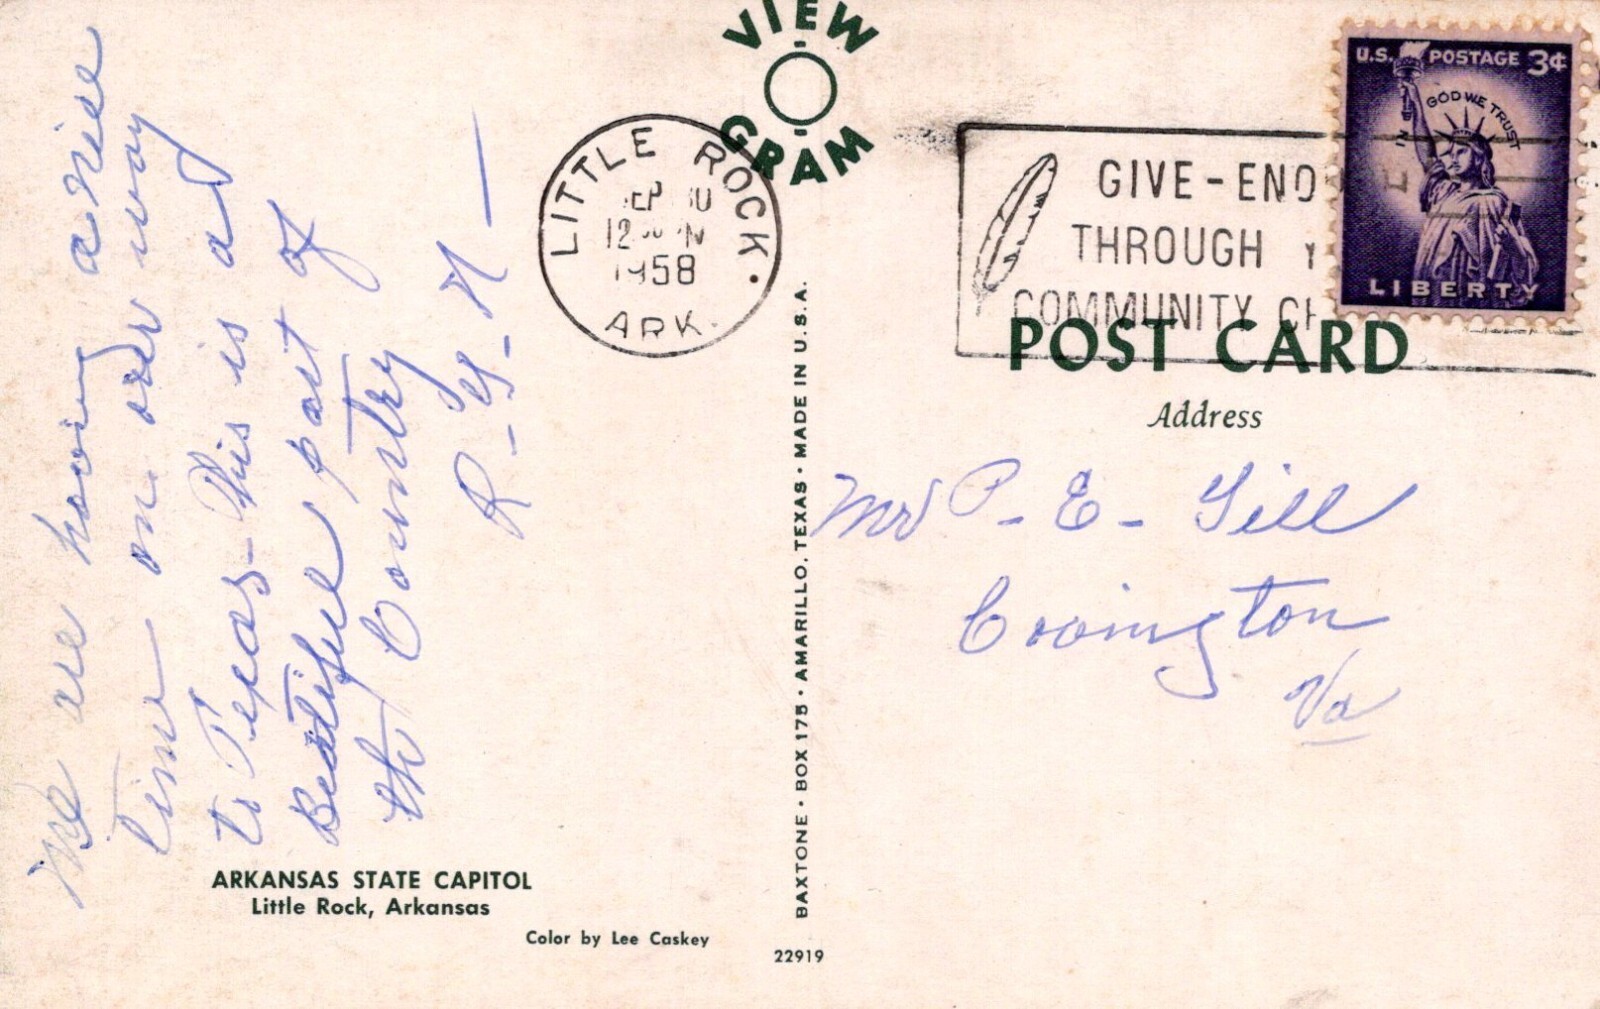 VIEW
GRAM
LITTLE ROCK.
1958
ARK.
GIVE-ENO
THROUGH Y
COMMUNITY CH
U.S. POSTAGE 3¢
IN GOD WE TRUST
LIBERTY
POST CARD
Address
We are having a nice
time on our way
to Texas - This is a
Beatiful part of
the Country
R-
P-E-Gill
Covington
Va
BAXTONE • BOX 175 • AMARILLO, TEXAS • MADE IN U.S.A.
ARKANSAS STATE CAPITOL
Little Rock, Arkansas
Color by Lee Caskey
22919